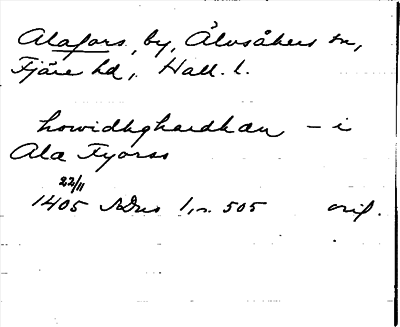 Alafors, by, Älvsåkers sn,
Fjäre hd, Hall. l.
howidhghardhan - i
Ala Fyorss
22/11
1405 SDns 1, n. 505 orig.